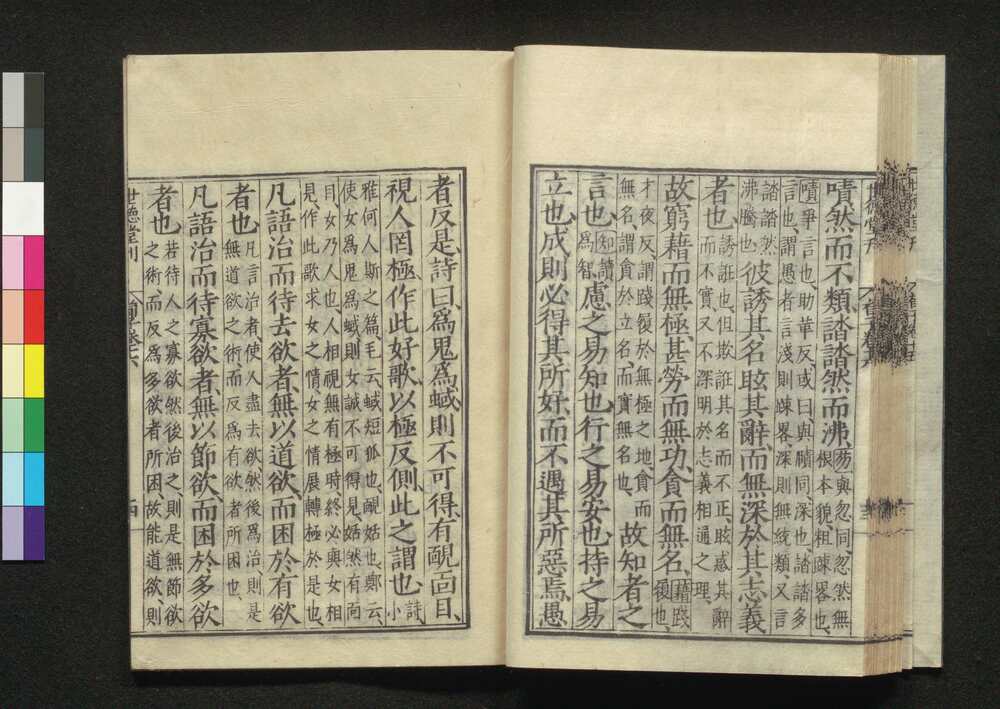 嘖然而不類誻誻然而沸
芴與忽同忽然無
根本貌粗疎畧也
嘖爭言也助華反或曰與賾同深也誻誻多
言也謂愚者言淺則疎畧深則無統類又言
誻誻然
沸騰也
彼誘其名眩其辭而無深於其志義
者也
誘誑也但欺誑其名而不正眩惑其辭
而不實又不深明於志義相通之理
故窮藉而無極甚勞而無功貪而無名
藉踐
履也
才夜反謂踐履於無極之地貪而
無名謂貪於立名而實無名也
故知者之
言也
知讀
爲智
慮之易知也行之易安也持之易
立也成則必得其所好而不遇其所惡焉愚
者反是詩曰爲鬼爲蜮則不可得有靦面目
視人罔極作此好歌以極反側此之謂也
詩
小
雅何人斯之篇毛云蜮短狐也靦姡也鄭云
使女爲鬼爲蜮則女誠不可得見姡然有面
目女乃人也人相視無有極時終必與女相
見作此歌求女之情女之情展轉極於是也
凡語治而待去欲者無以道欲而困於有欲
者也
凡言治者使人盡去欲然後爲治則是
無道欲之術而反爲有欲者所困也
凡語治而待寡欲者無以節欲而困於多欲
者也
若待人之寡欲然後治之則是無節欲
之術而反爲多欲者所困故能道欲則
世德堂刊